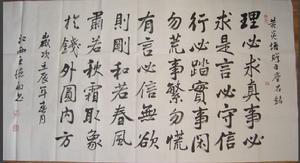 黄炎培座右銘
理必求真事必
求是言必守信
行必踏實事闲
勿荒事繁勿慌
有言必信無欲
則剛和若春風
肅若秋霜取象
於錢外圓内方
歲次壬辰年春月
江西王